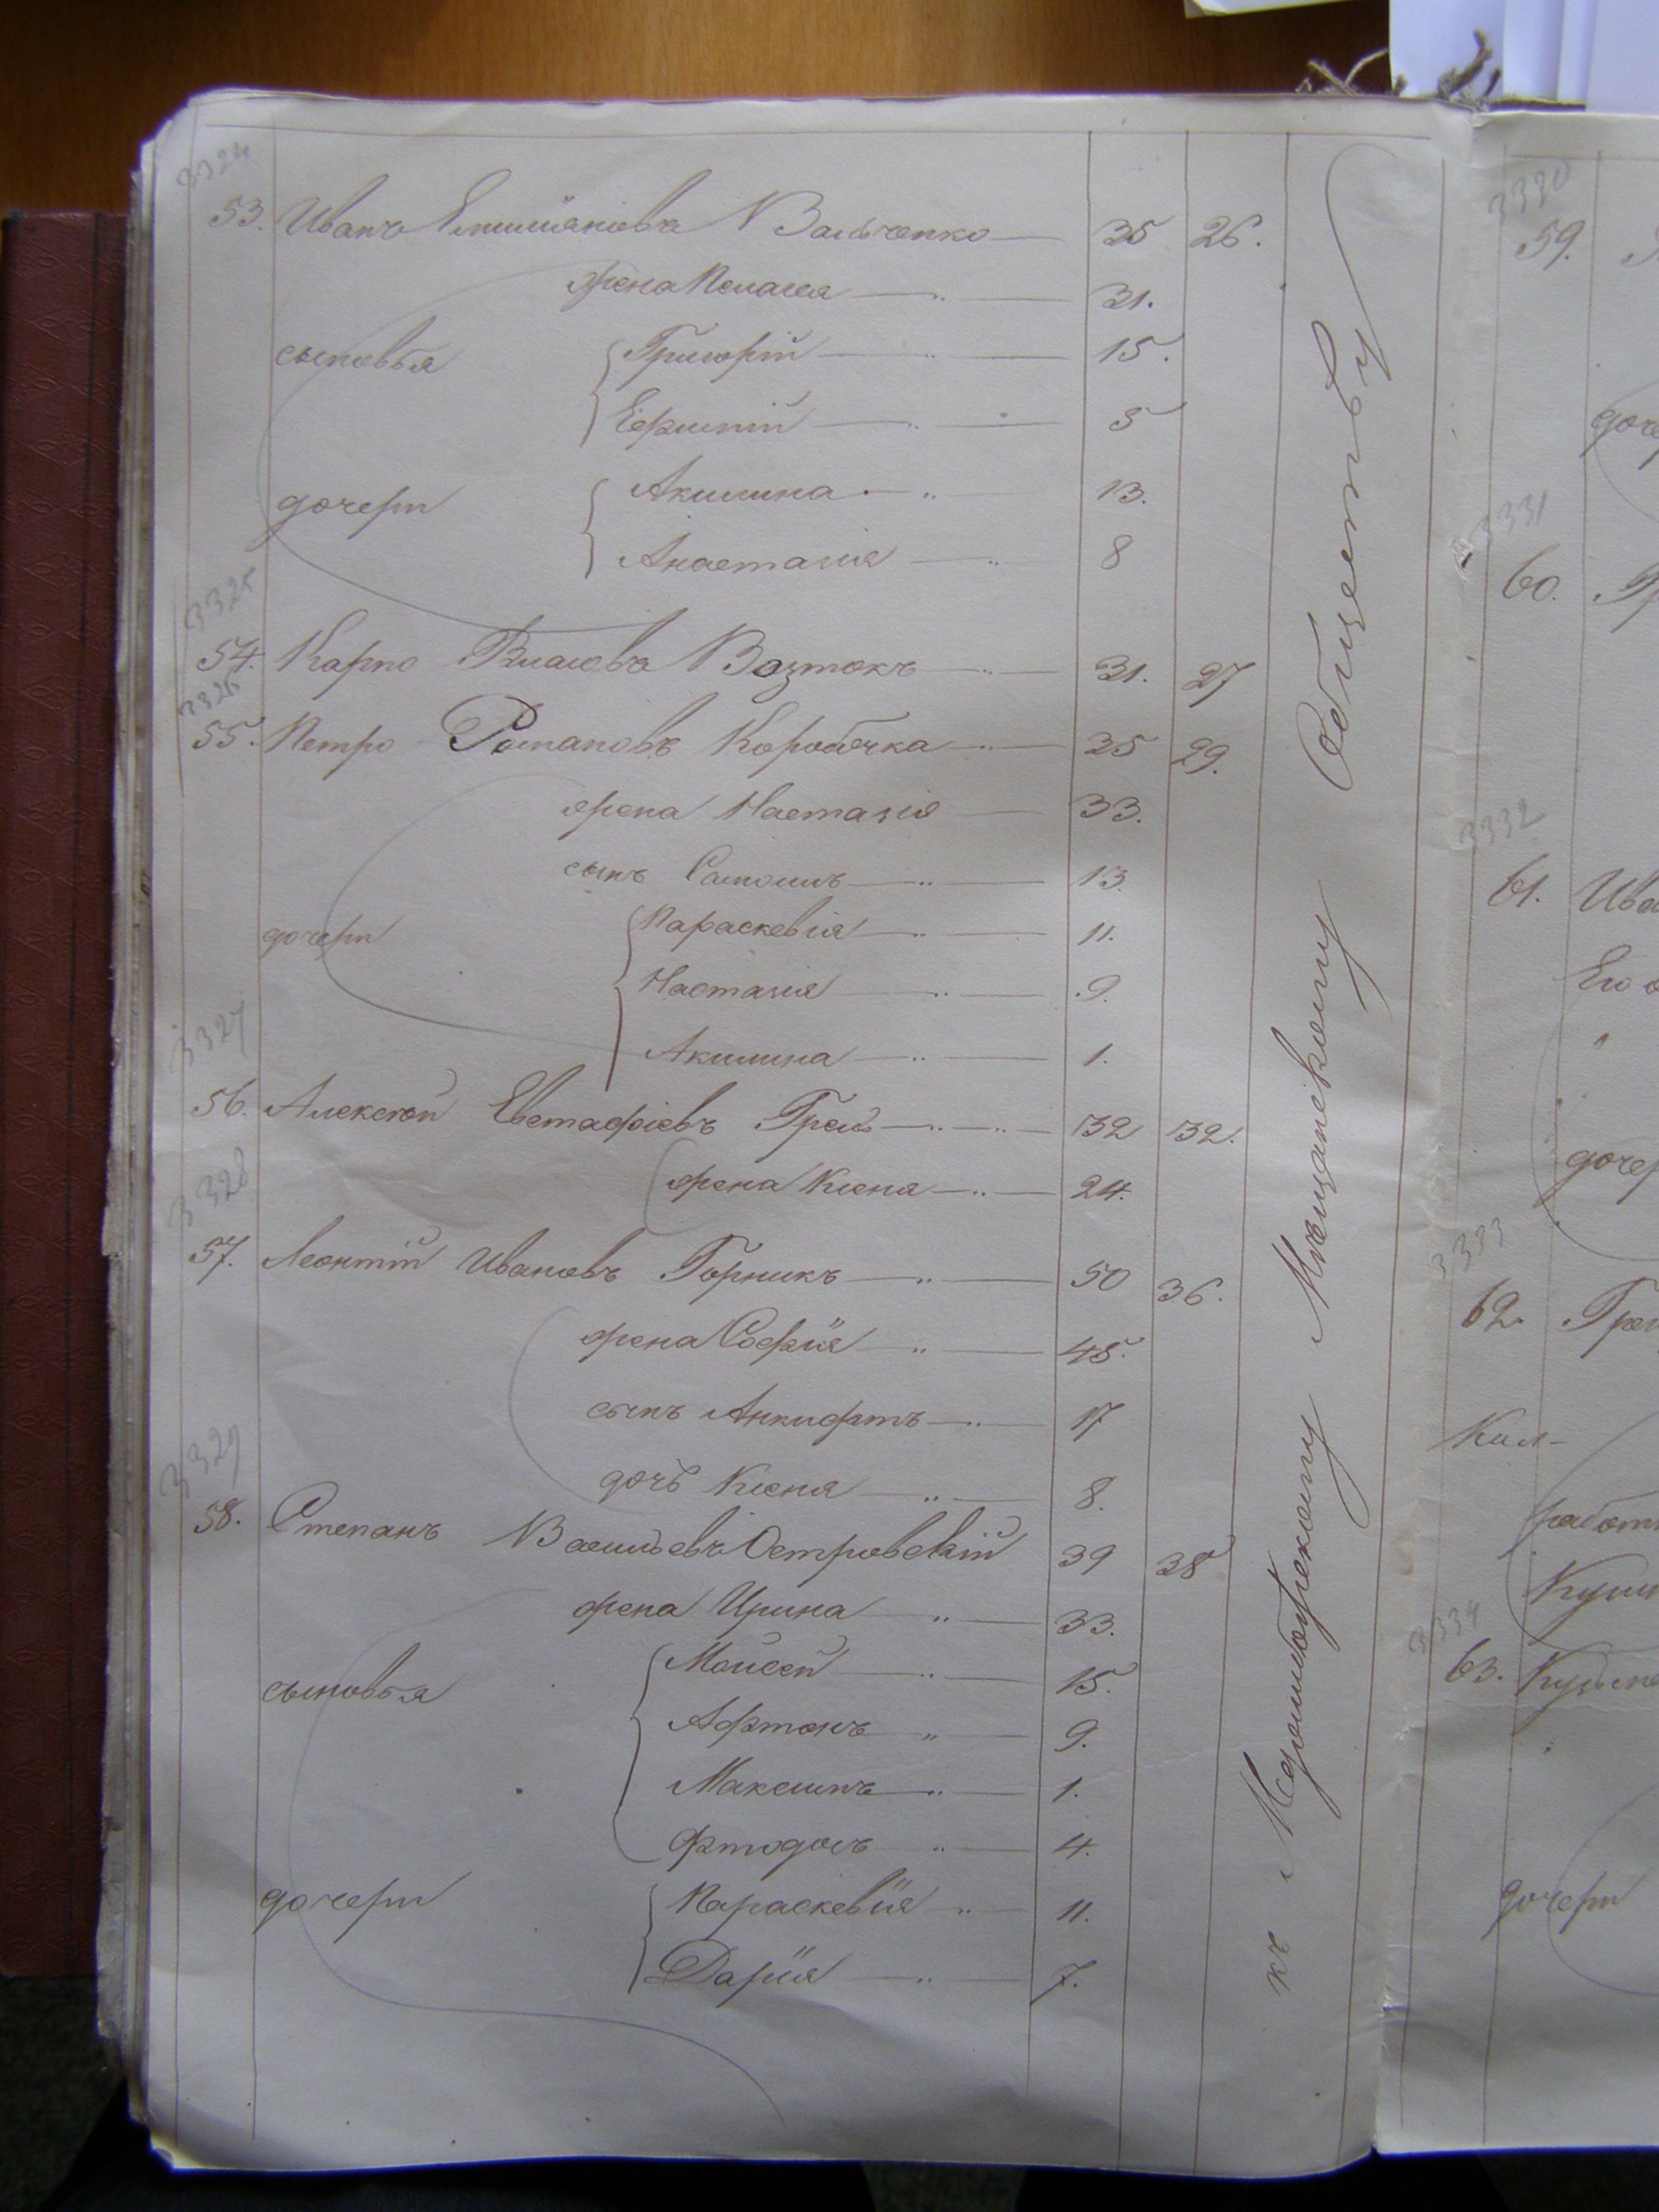 3324
53. Иванъ Емилiановъ Вальченко 35 26.
жена Пелагея 31.
сыновья Григорiй 15.
Ефимiй 5
дочери Акилина 13.
Анастасiя 8
3325
54. Карпо Власовъ 31. 27
3326
55. Петро Романовъ Коробочка 35 29.
жена Настасiя 33.
сынъ Самоилъ 13.
дочери Параскевiя 11.
Настасiя 9.
Акилина 1.
3327
56. Алексѣй Евстафiевъ 32 32.
жена Ксенiя 24.
3328
57. Леонтiй Ивановъ Горникъ 50 36.
жена Софiя 45.
сынъ 17
дочь Ксенiя 8.
3329
58. Степанъ Васильевъ Островскiй 39 38
жена Ирина 33.
сыновья Моисей 15.
9.
Максимъ 1.
4.
дочери Параскевiя 11.
Дарiя 7.
къ Мѣщанскому Обществу
3330
59.
дочери
3331
60.
3332
61. Ива
Его
дочер
3333
62.
3334
63.
дочери